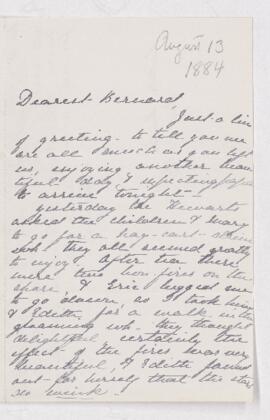 August 13
1884
Dearest Bernard,
Just a line
of greeting to tell you we
are all much as you left
us, enjoying another beau
tiful day & expecting
to arrive tonight -
Yesterday the Stewarts
asked the children & Mary
to go for a hay-cart
wh they all seemed greatly
to enjoy. After tea there
were two bon-fires on the
shore, & Eric begged me
to go down, so I took him
& Edith, for a walk in the
gloaming wh. they thought
delightful. Certainly the
effect of the fires was very
beautiful, & Edith found
out for herself that the stars
do wink.